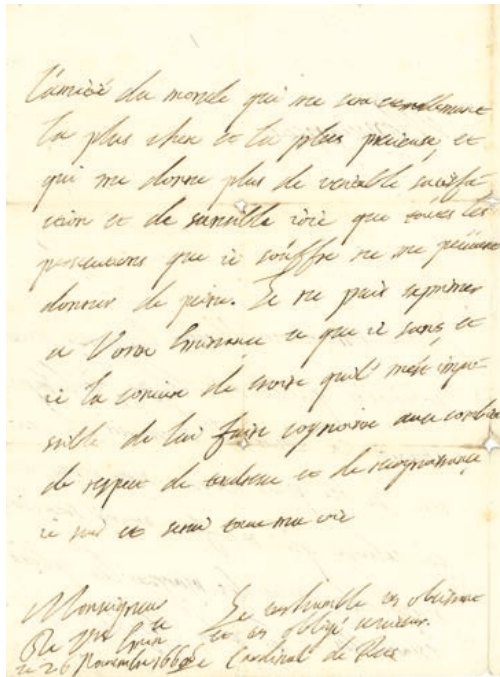 l'amitié du monde qui me
la plus chere et la plus precieuse, et
qui me donne plus de veritable satisfa-
ction et de sensible ioie que toutes les
persecutions que ie souffre ne me peuvent
donner de peine. Ie ne puis
a Vostre Eminence ce que ie sens, et
ie la de croire qu'il m'est impo-
ssible de lui faire cognoistre avec combien
de respect de tendresse et de recognoissance
ie suis et serai toute ma vie
Monseigneur
De Vre Emin ce
Le tres humble tres obeissant
et tres obligé serviteur.
ce 26 Novembre Le Cardinal de Retz